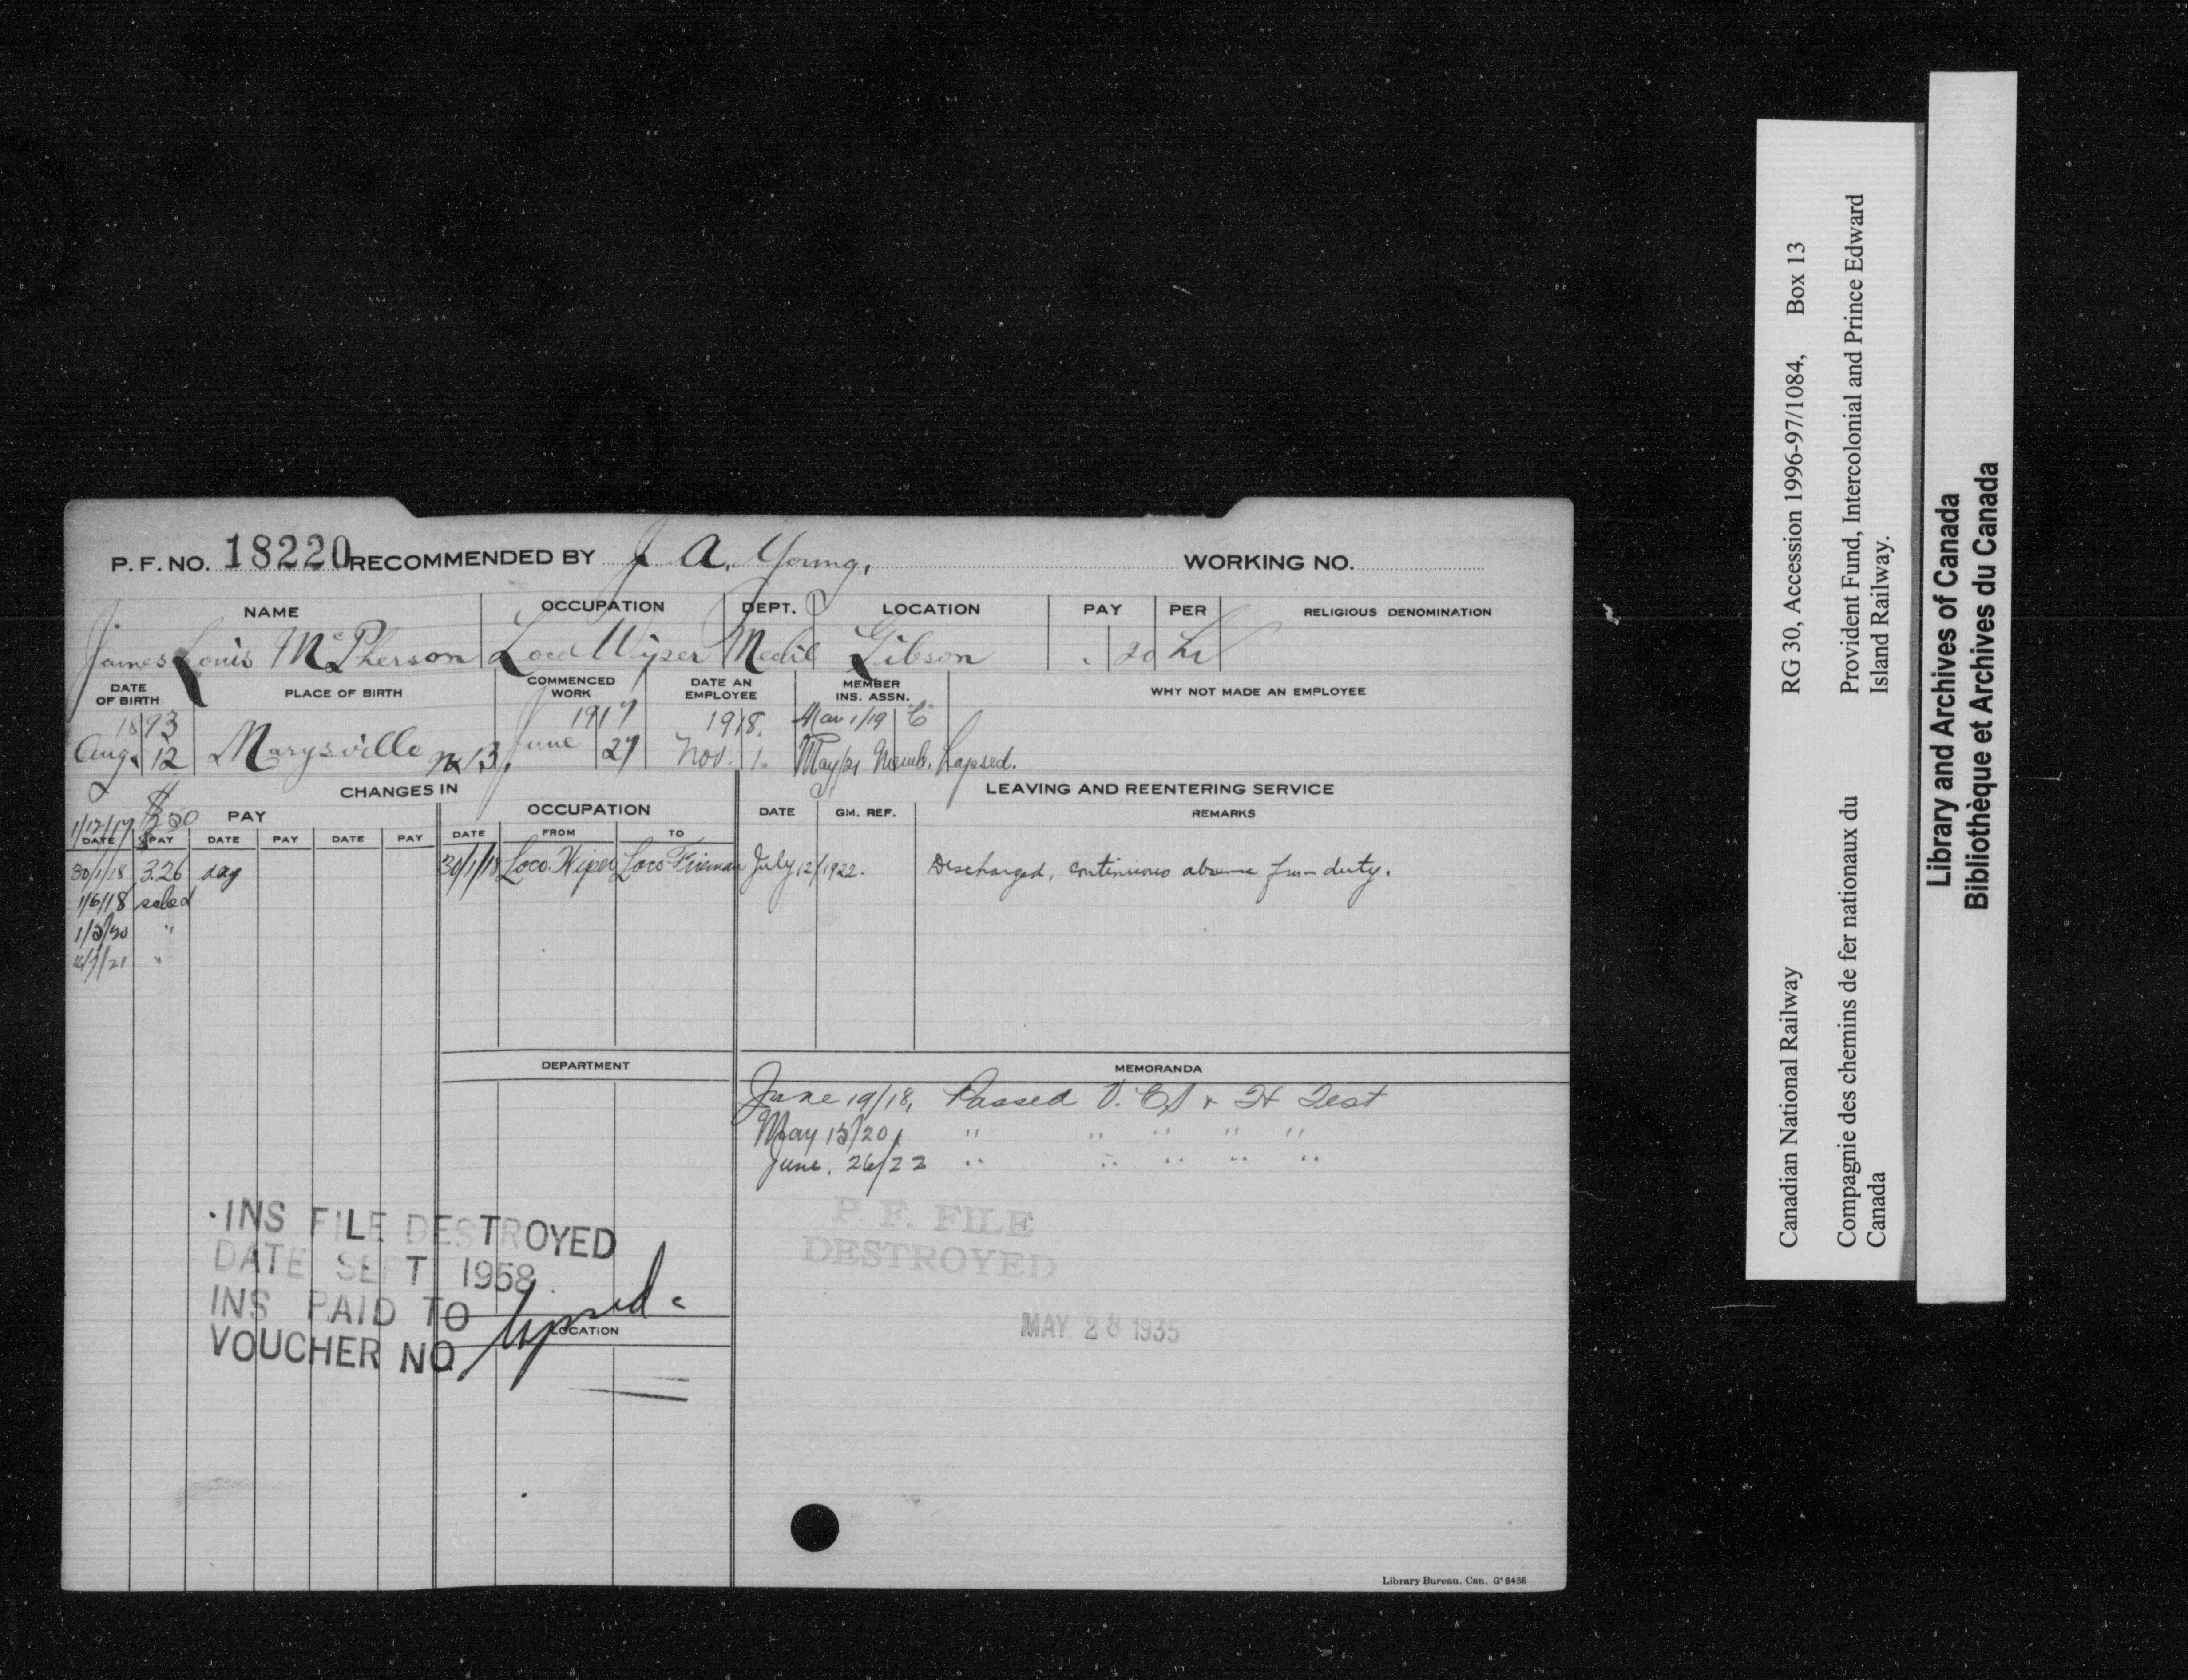 P. F. NO. 18220 RECOMMENDED BY J. A. Young, WORKING NO.
NAME OCCUPATION DEPT. LOCATION PAY PER RELIGIOUS DENOMINATION
James Louis McPherson Loco Wiper Mech'l Gibson . 20 hr
DATE OF BIRTH PLACE OF BIRTH COMMENCED WORK DATE AN EMPLOYEE MEMBER INS. ASSN. WHY NOT MADE AN EMPLOYEE
1893 1917 1918. Mar 1/19 "C"
Aug. 12 Marysville N.B. June 27 Nov. 1. May/21 Memb. Lapsed.
CHANGES IN LEAVING AND REENTERING SERVICE
1/12/17 $2.50 PAY OCCUPATION DATE GM. REF. REMARKS
DATE PAY DATE PAY DATE PAY DATE FROM TO
30/1/18 3.26 day 30/1/18 Loco. Wiper Loco Fireman July 12/1922. Discharged, continuous absence from duty.
1/6/18 sched
1/5/20 "
16/7/21 "
DEPARTMENT MEMORANDA
June 19/18, Passed V. C.S & H Test
May 15/20, " " " " "
June. 26/22 " " " " "
INS FILE DESTROYED
DATE SEPT 1958
INS PAID TO
VOUCHER NO lapsed.
LOCATION
P. F. FILE
DESTROYED
MAY 28 1935
Library Bureau. Can. G 6436
Canadian National Railway RG 30, Accession 1996-97/1084, Box 13
Compagnie des chemins de fer nationaux du Canada
Provident Fund, Intercolonial and Prince Edward Island Railway.
Library and Archives of Canada
Bibliothèque et Archives du Canada